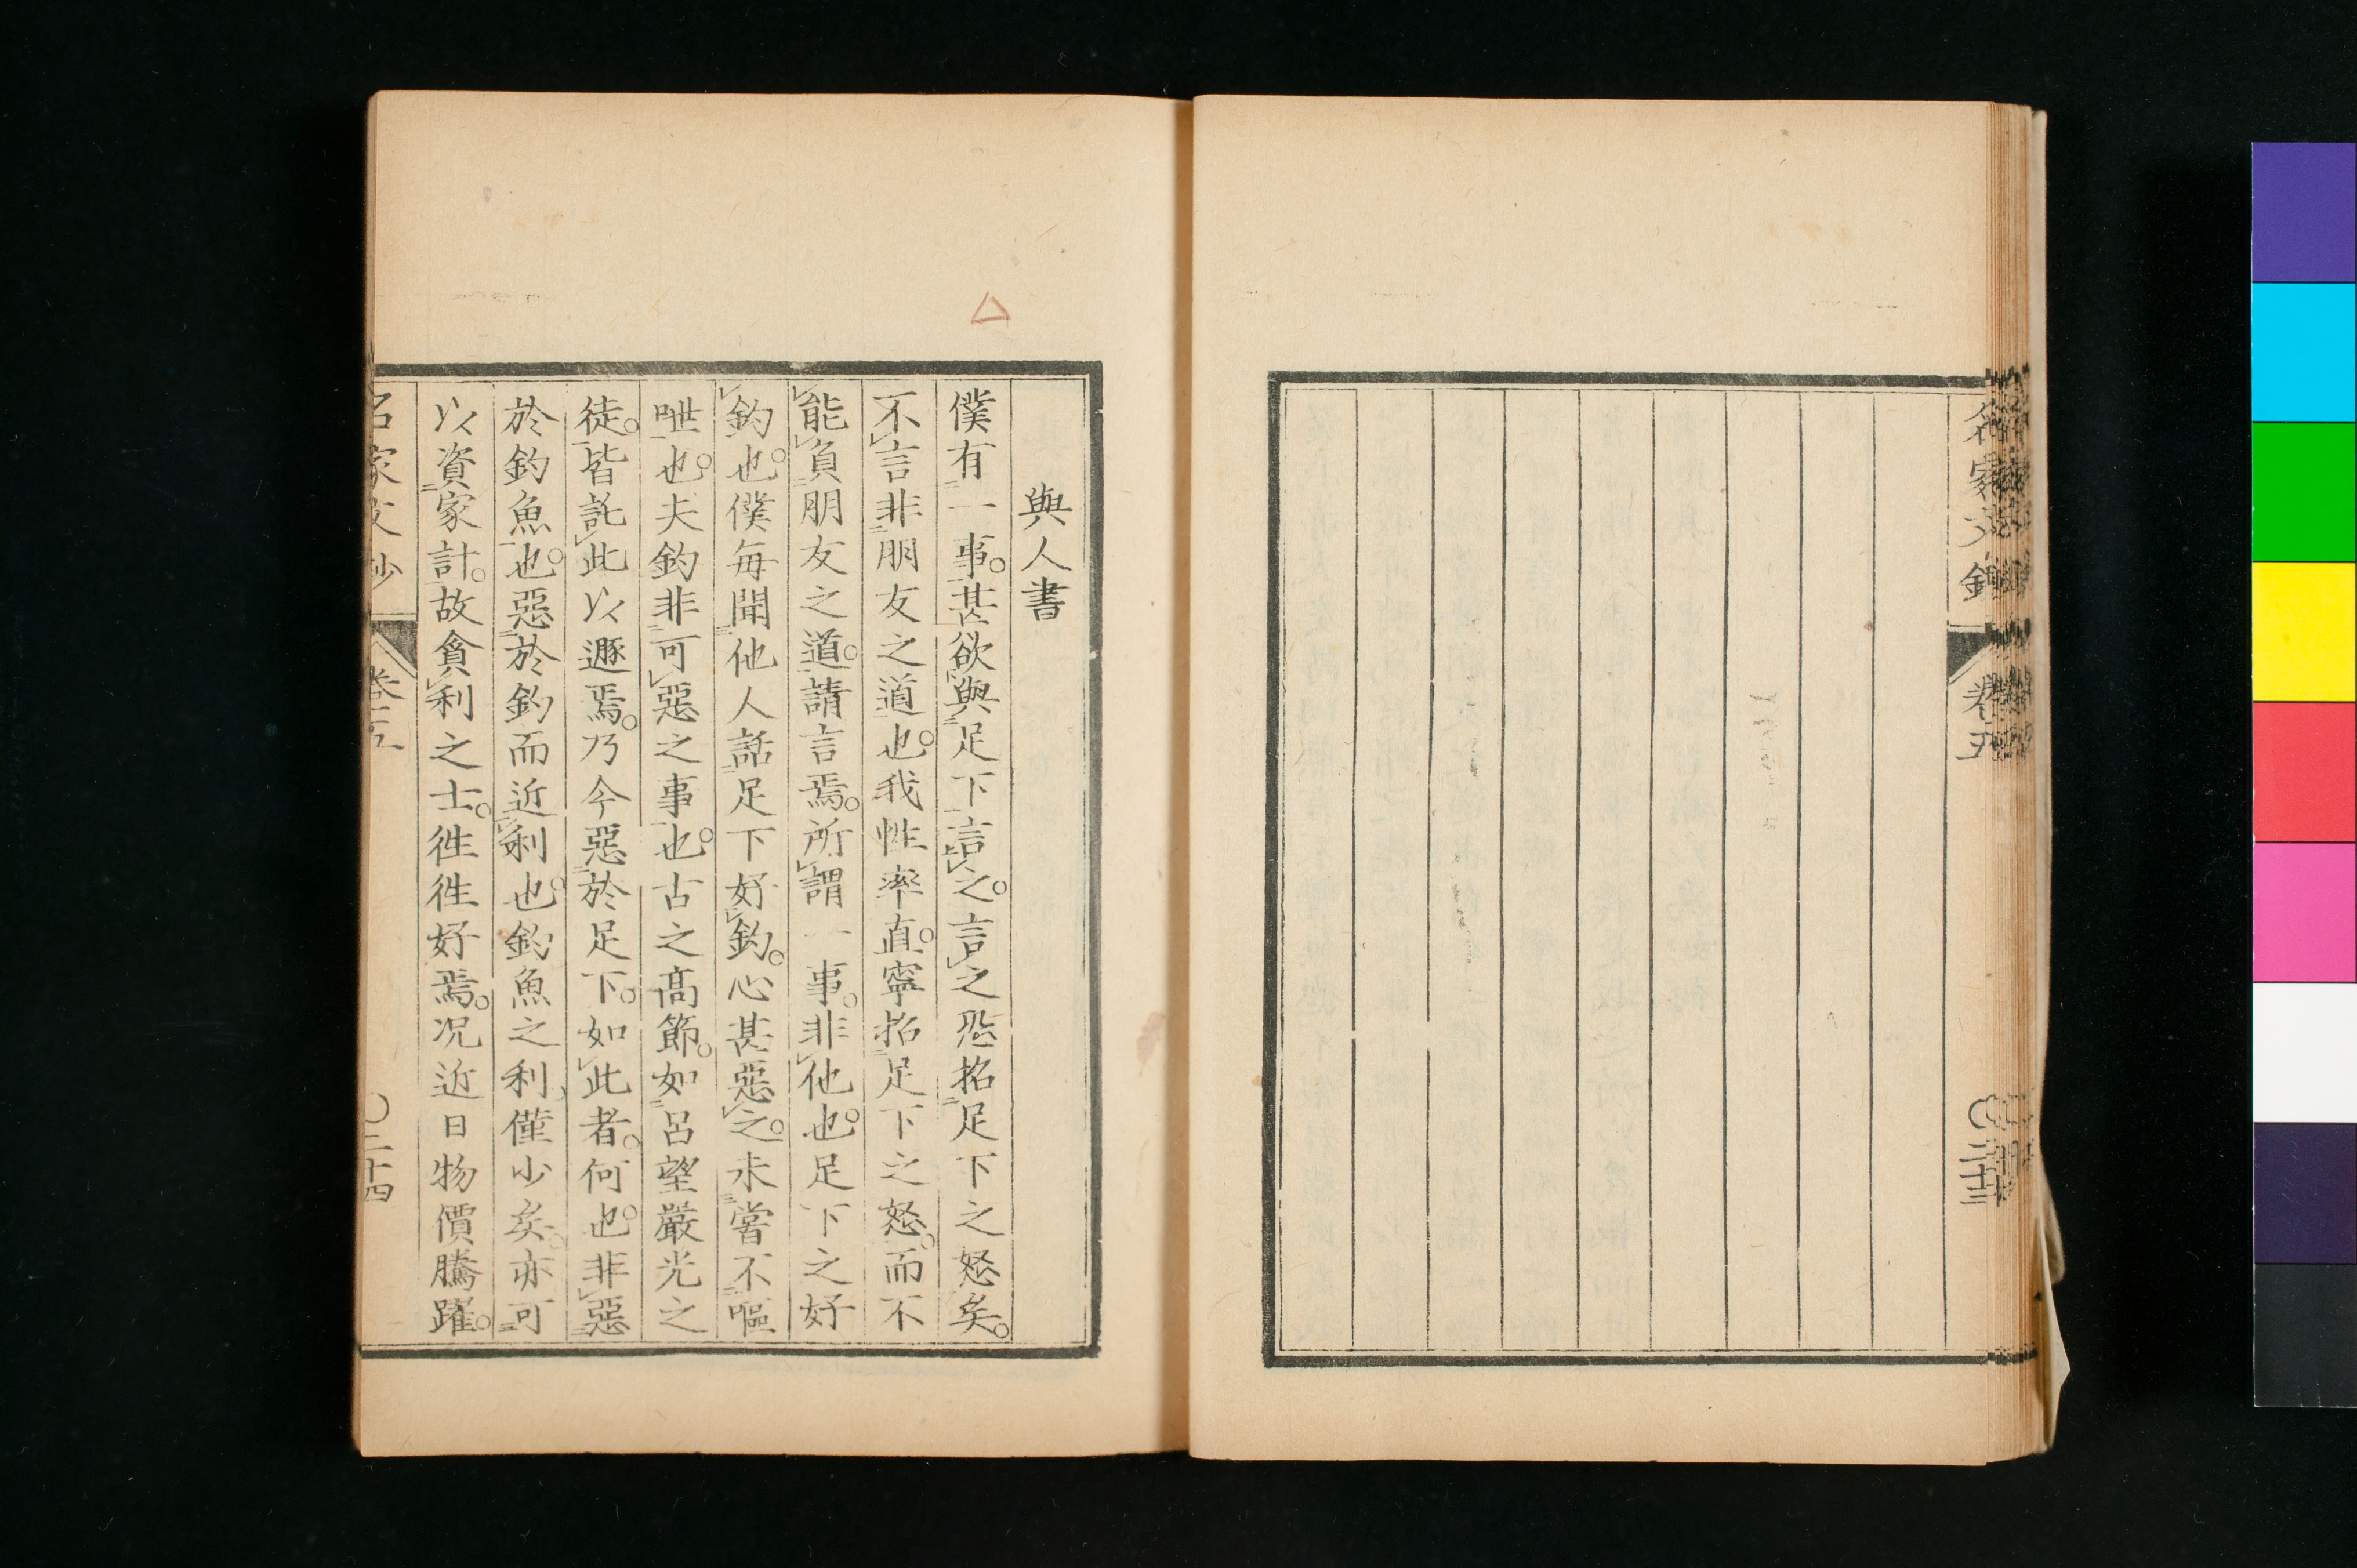 名家文鈔
卷五
〇二十三
與人書
僕有一事。甚欲與足下言之。言之恐招足下之怒矣。
不言非朋友之道也。我性率直。寧招足下之怒。而不
能負朋友之道。請言焉。所謂一事。非他也。足下之好
釣也。僕每聞他人話足下好釣。心甚惡之。未嘗不嘔
呭也。夫釣非可惡之事也。古之高節。如呂望嚴光之
徒。皆託此以遯焉。乃今惡於足下。如此者。何也。非惡
於釣魚也。惡於釣而近利也。釣魚之利、僅少矣。亦可
以資家計。故貪利之士。徃徃好焉。况近日物價騰躍。
名家文鈔
卷五
〇二十四